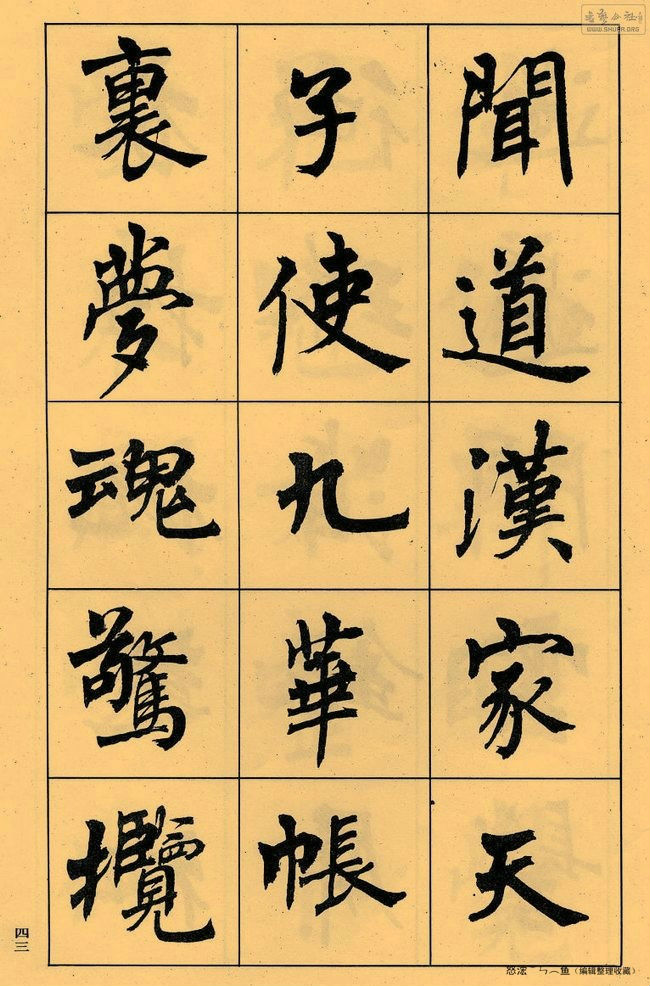 聞道漢家天
子使九華帳
裏夢魂驚攬
四三
WWW.SHUFA.ORG
(编辑整理收藏)